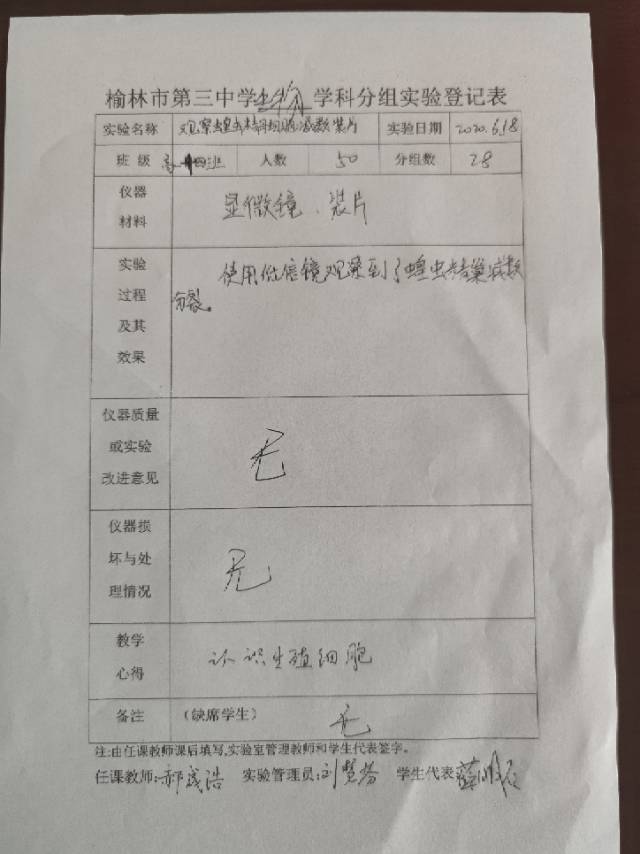 榆林市第三中学生物学科分组实验登记表
实验名称 观察蝗虫精母细胞减数装片 实验日期 2020.6.18
班 级 高一四班 人数 50 分组数 28
仪器
材料
显微镜、装片
实验
过程
及其
效果
使用低倍镜观察到了蝗虫精巢减数
分裂。
仪器质量
或实验
改进意见
无
仪器损
坏与处
理情况
无
教学
心得
认识生殖细胞
备注 (缺席学生) 无
注:由任课教师课后填写,实验室管理教师和学生代表签字。
任课教师: 浩 实验管理员: 刘慧 学生代表